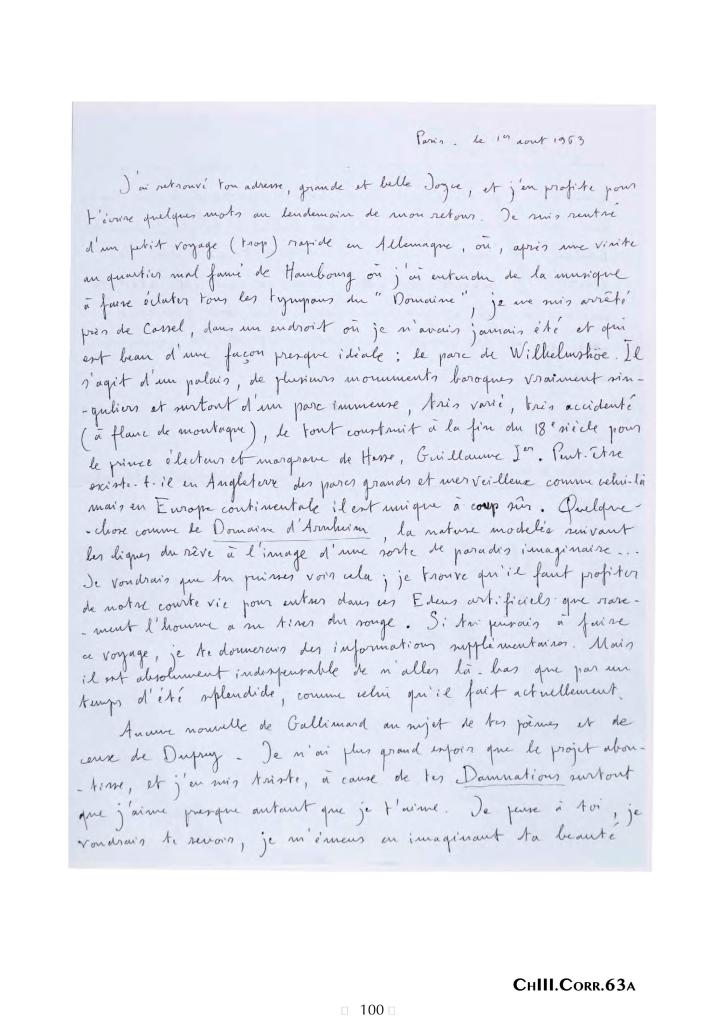 Paris - le 1er aout 1963
J'ai retrouvé ton adresse, grande et belle Joyce, et j'en profite pour
t'écrire quelques mots au lendemain de mon retour. Je suis rentré
d'un petit voyage (trop) rapide en Allemagne, où, après une visite
au quartier mal famé de Hambourg où j'ai entendu de la musique
à faire éclater tous les tympans du "Domaine", je me suis arrêté
près de Cassel, dans un endroit où je n'avais jamais été et qui
est beau d'une façon presque idéale : le parc de Wilhelmshöe. Il
s'agit d'un palais, de plusieurs monuments baroques vraiment sin-
-guliers et surtout d'un parc immense, très varié, très accidenté
(à flanc de montagne), le tout construit à la fin du 18e siècle pour
le prince électeur et margrave de Hesse, Guillaume Ier. Peut-être
existe-t-il en Angleterre des parcs grands et merveilleux comme celui-là
mais en Europe continentale il est unique à coup sûr. Quelque-
-chose comme le Domaine d'Arnheim, la nature modelée suivant
les lignes du rêve à l'image d'une sorte de paradis imaginaire...
Je voudrais que tu puisses voir cela ; je trouve qu'il faut profiter
de notre courte vie pour entrer dans ces Edens artificiels que rare-
-ment l'homme a su tirer du songe. Si tu pensais à faire
ce voyage, je te donnerais des informations supplémentaires. Mais
il est absolument indispensable de n'aller là-bas que par un
temps d'été splendide, comme celui qu'il fait actuellement.
Aucune nouvelle de Gallimard au sujet de tes poèmes et de
ceux de Duprey - Je n'ai plus grand espoir que le projet abou-
-tisse, et j'en suis triste, à cause de tes Damnations surtout
que j'aime presque autant que je t'aime. Je pense à toi, je
voudrais te revoir, je m'émeus en imaginant ta beauté
CHIII.CORR.63A
100